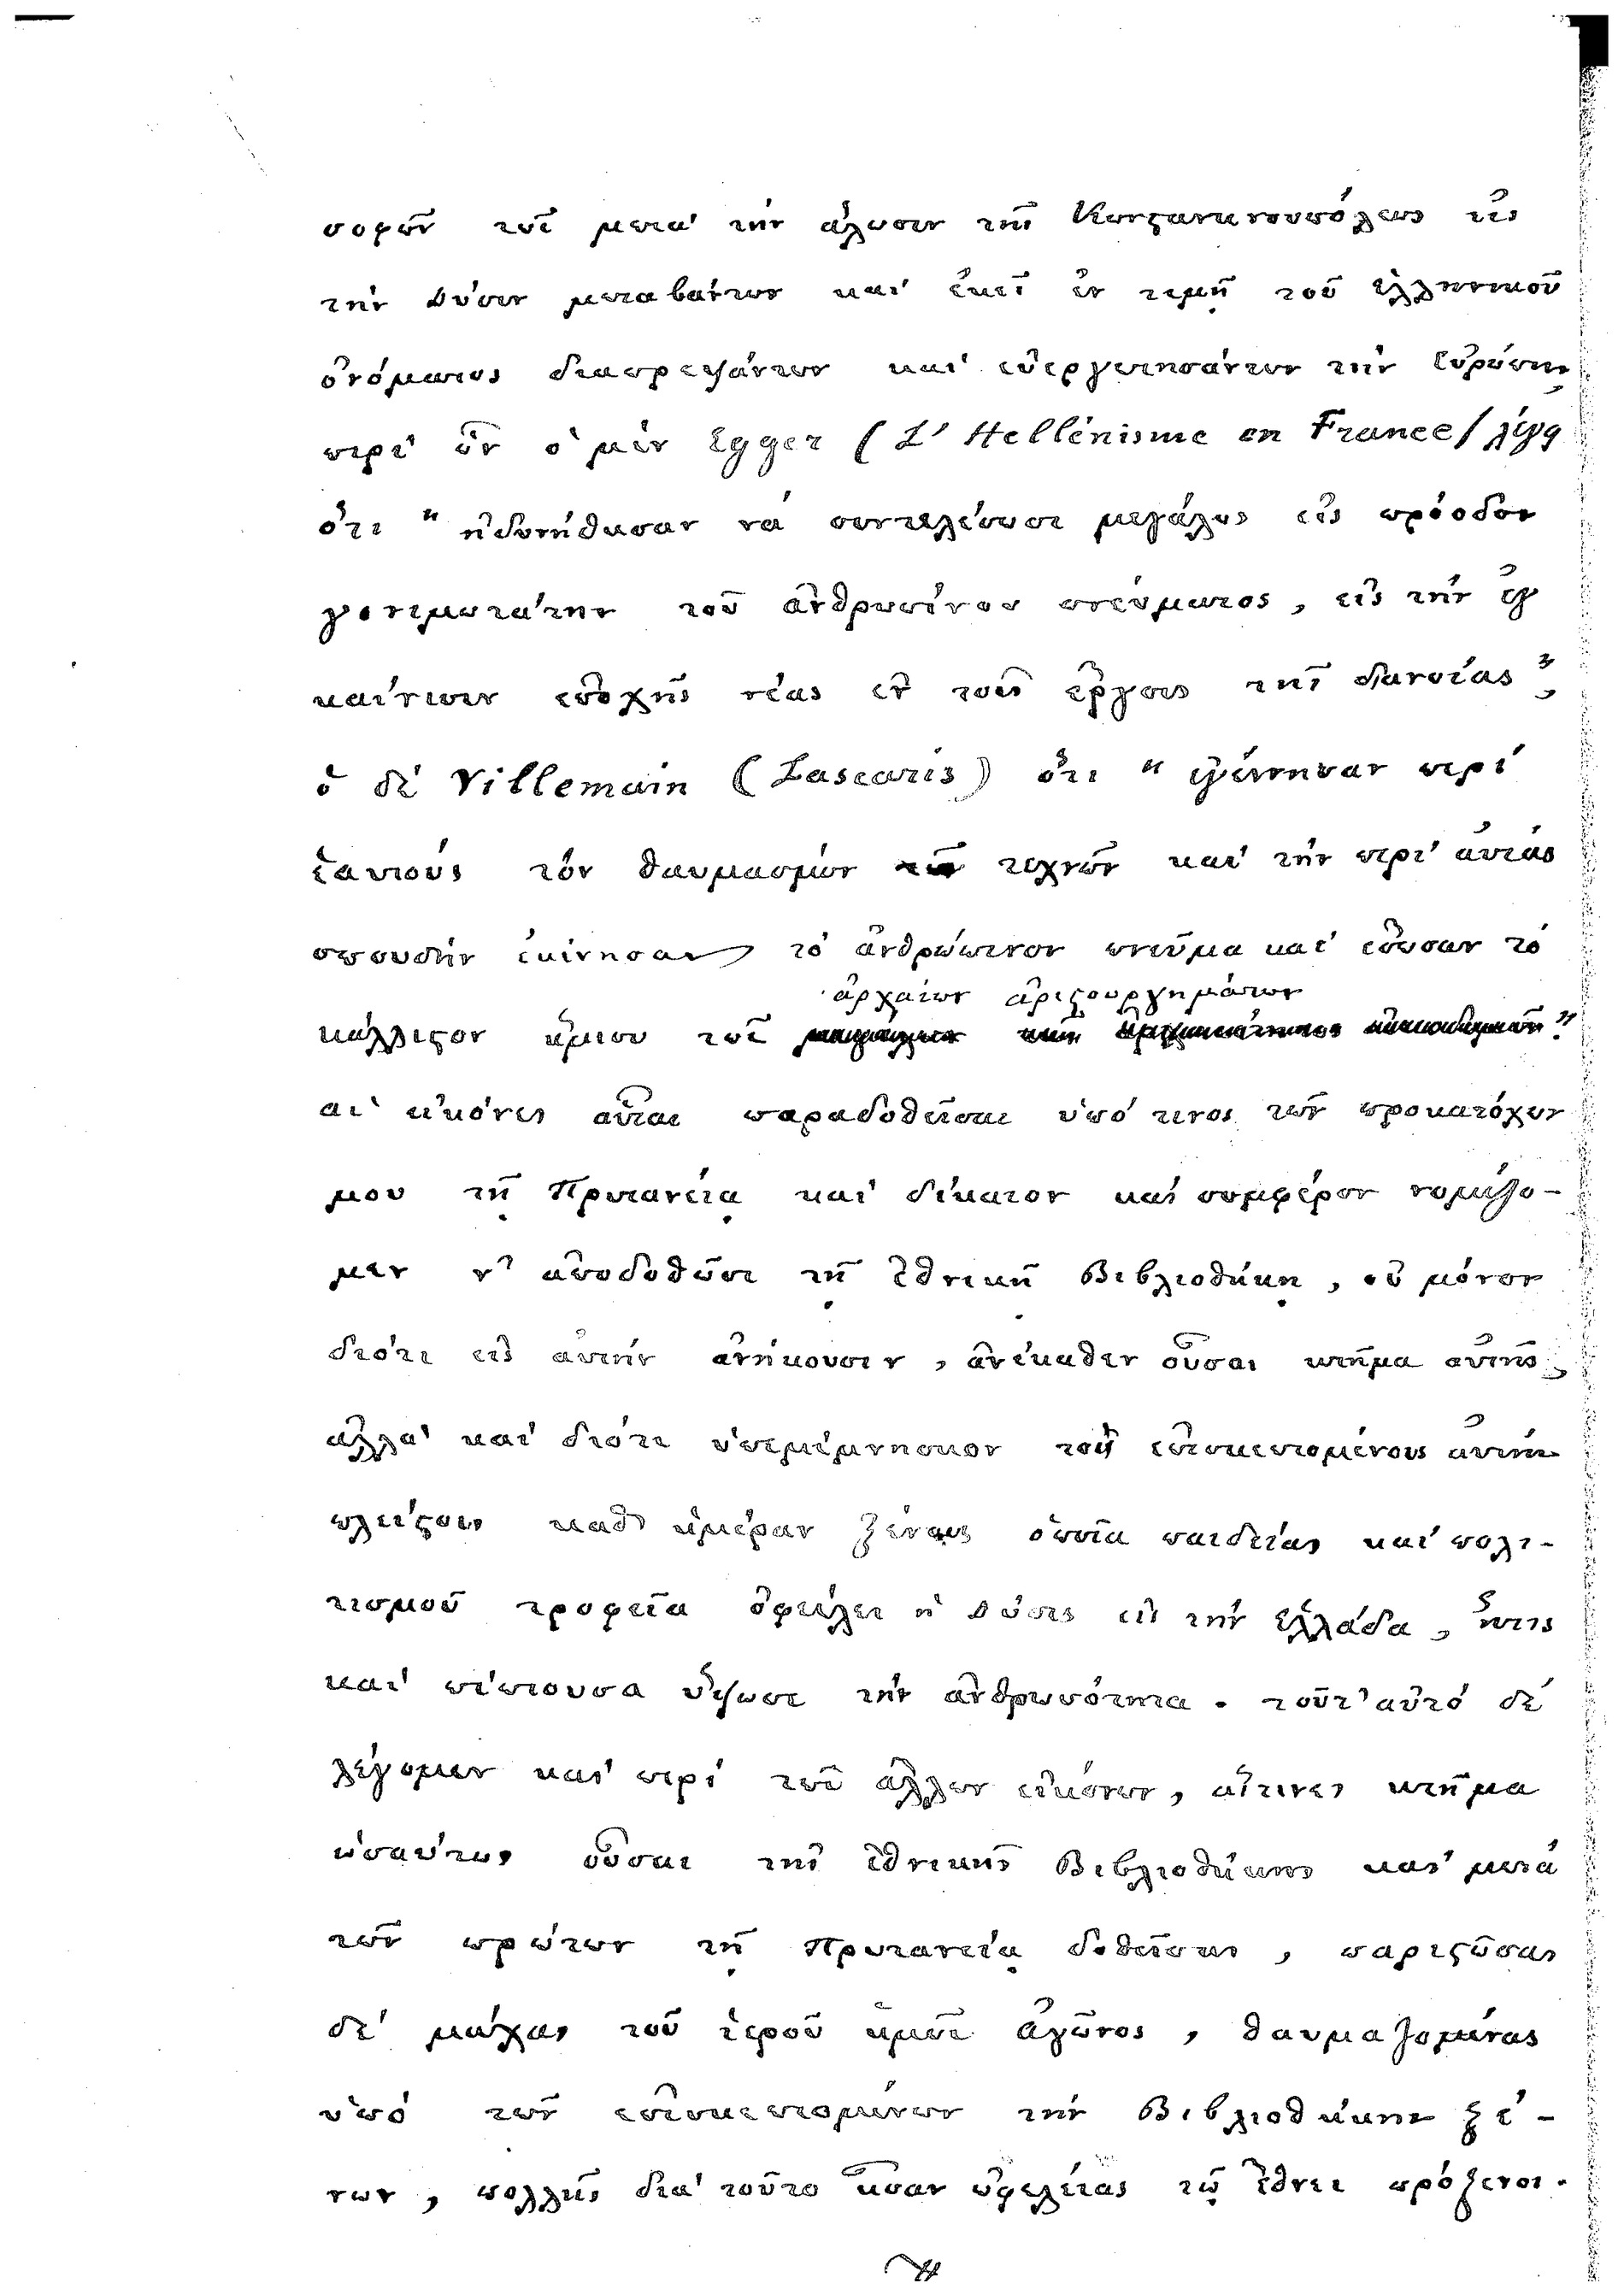 σοφῶν τῶν μετὰ τὴν ἅλωσιν τῆς Κωνσταντινουπόλεως εἰς
τὴν Δύσιν μεταβάντων καὶ ἐκεῖ ἐν τιμῇ τοῦ ἑλληνικοῦ
ὀνόματος διαπρεψάντων καὶ εὐεργετησάντων τὴν Εὐρώπην,
περὶ ὧν ὁ μὲν Egger (L' Hellénisme en France) λέγει
ὅτι " ἠδυνήθησαν νὰ συντελέσωσι μεγάλως εἰς πρόοδον
γονιμωτάτην τοῦ ἀνθρωπίνου πνεύματος, εἰς τὴν ἐγ
καίνισιν ἐποχῆς νέας ἐν τοῖς ἔργοις τῆς διανοίας",
ὁ δὲ Villemain (Lascaris) ὅτι " ἐγέννησαν περὶ
ἑαυτοὺς τὸν θαυμασμὸν τῶν τεχνῶν καὶ τὴν περὶ αὐτὰς
σπουδὴν ἐκίνησαν τὸ ἀνθρώπινον πνεῦμα καὶ ἔσωσαν τὸ
ἀρχαίων ἀριστουργημάτων
κάλλιστον ἥμισυ τῶν "
αἱ εἰκόνες αὗται παραδοθεῖσαι ὑπό τινος τῶν προκατόχων
μου τῇ Πρυτανείᾳ καὶ δίκαιον καὶ συμφέρον νομίζο-
μεν ν' ἀποδοθῶσι τῇ Ἐθνικῇ Βιβλιοθήκῃ, οὐ μόνον
διότι εἰς αὐτὴν ἀνήκουσιν, ἀνέκαθεν οὖσαι κτῆμα αὐτῆς,
ἀλλὰ καὶ διότι ὑπεμίμνησκον τοὺς ἐπισκεπτομένους αὐτὴν
πλείστους καθ' ἡμέραν ξένους ὁποῖα παιδείας καὶ πολι-
τισμοῦ τροφεῖα ὀφείλει ἡ Δύσις εἰς τὴν Ἑλλάδα, ἥτις
καὶ πίπτουσα ὕψωσε τὴν ἀνθρωπότητα. τοῦτ' αὐτὸ δὲ
λέγομεν καὶ περὶ τῶν ἄλλων εἰκόνων, αἵτινες κτῆμα
ὡσαύτως οὖσαι τῆς Ἐθνικῆς Βιβλιοθήκης καὶ μετὰ
τῶν πρώτων τῇ Πρυτανείᾳ δοθεῖσαι, παριστῶσαι
δὲ μάχας τοῦ ἱεροῦ ἡμῶν ἀγῶνος, θαυμαζομένας
ὑπὸ τῶν ἐπισκεπτομένων τὴν Βιβλιοθήκην ξέ-
νων, πολλῆς διὰ τοῦτο ἦσαν ὠφελείας τῷ ἔθνει πρόξενοι.